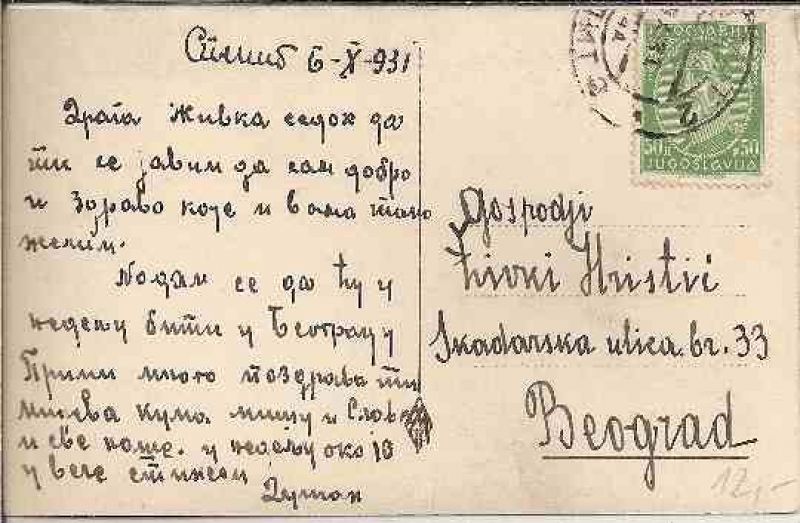 6-X-931
Драга Живка седох да
ти се јавим да сам добро
и здраво које и вама тако
желим.
Надам се да ћу у
недељу бити у Београду
Прими много поздрава ти
кума. мишу и
и све наше. у недељу око 10
у вече стижем
Душан
JUGOSLAVIJA
Gospodji
Živki Hristić
Skadarska ulica. br. 33
Beograd
12,-